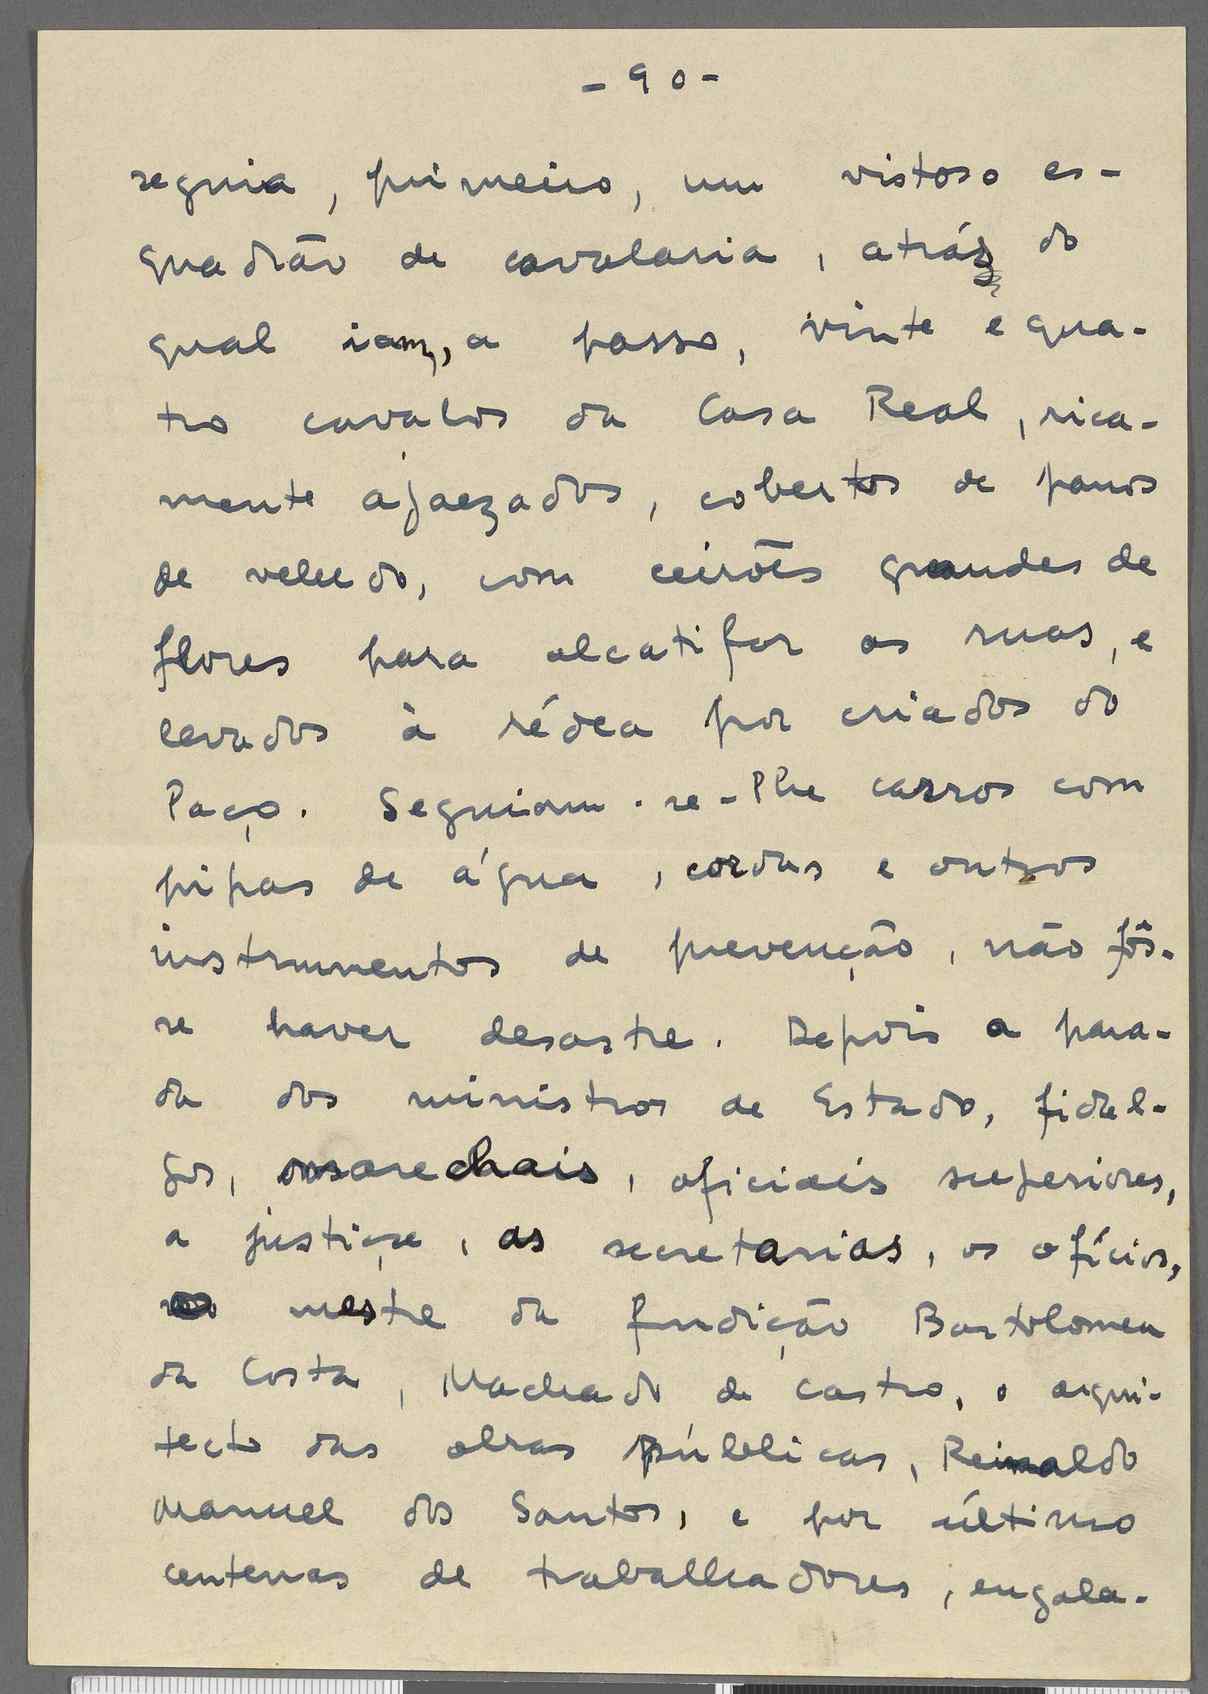 - 90 -
seguia, primeiro, um vistoso es-
quadrão de cavalaria, atrás do
qual iam, a passo, vinte e qua-
tro cavalos da Casa Real, rica-
mente ajaezados, cobertos de panos
de veludo, com ceirões grandes de
flores para alcatifar as ruas, e
levados à rédea por criados do
Paço. Seguiam-se-lhe carros com
pipas de água, cordas e outros
instrumentos de prevenção, não fôs-
se haver desastre. Depois a para-
da dos ministros de Estado, fidal-
gos, marechais, oficiais superiores,
a justiça, as secretarias, os ofícios,
mestre da fundição Bartolomeu
da Costa, Machado de Castro, o arqui-
tecto das obras públicas, Reinaldo
Manuel dos Santos, e por último
centenas de trabalhadores, engala-